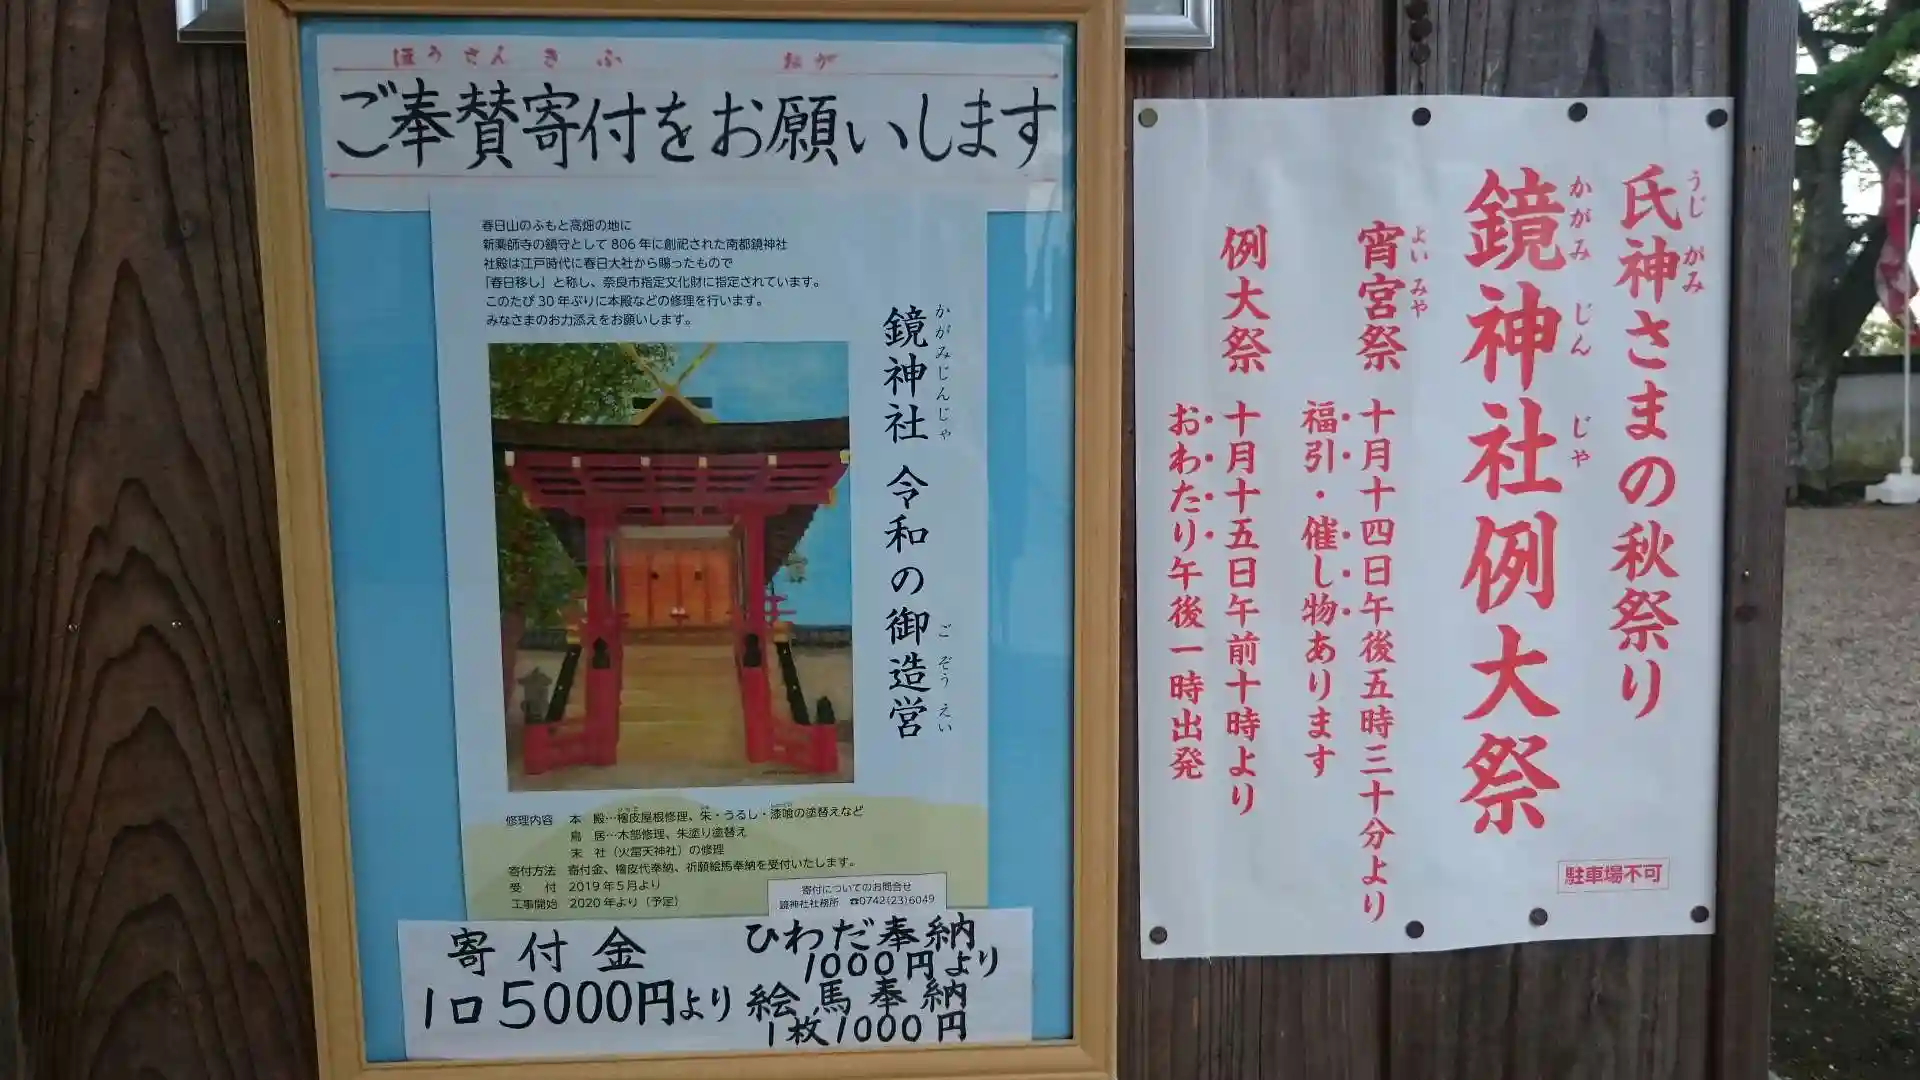 ほうさん きふ ねが
ご奉賛寄付をお願いします
春日山のふもと高畑の地に
新薬師寺の鎮守として806年に創祀された南都鏡神社
社殿は江戸時代に春日大社から賜ったもので
「春日移し」と称し、奈良市指定文化財に指定されています。
このたび30年ぶりに本殿などの修理を行います。
みなさまのお力添えをお願いします。
かがみじんじゃ ごぞうえい
鏡神社 令和の御造営
修理内容 本 殿…檜皮屋根修理、朱・うるし・漆喰の塗替えなど
鳥 居…木部修理、朱塗り塗替え
末 社(火雷天神社)の修理
寄付方法 寄付金、檜皮代奉納、祈願絵馬奉納を受付いたします。
受 付 2019年5月より
工事開始 2020年より(予定)
寄付についてのお問合せ
鏡神社社務所 ☎0742(23)6049
寄付金
1口5000円より
ひわだ奉納
1000円より
絵馬奉納
1枚1000円
うじ がみ
氏神さまの秋祭り
かがみ じん じゃ
鏡神社例大祭
よい みや
宵宮祭 十月十四日午後五時三十分より
福引・催し物あります
例大祭 十月十五日午前十時より
おわたり午後一時出発
駐車場不可